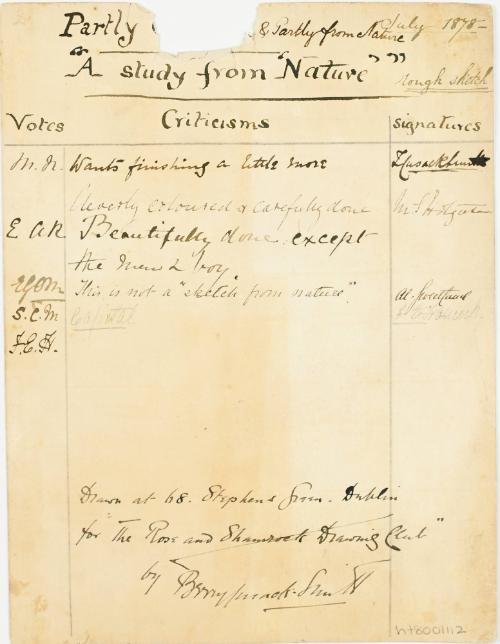 Partly & Partly from Nature July 1878
"A study from "Nature""
rough sketch
Votes Criticisms Signatures
M.N. Wants finishing a little more
Cleverly coloured & carefully done
E A R Beautifully done except
the men & boy.
This is not a "sketch from nature".
S.E.M Capital
F.C.H.
Drawn at 68. Stephens Green. Dublin
for "The Rose and Shamrock Drawing Club"
by
ht8001112